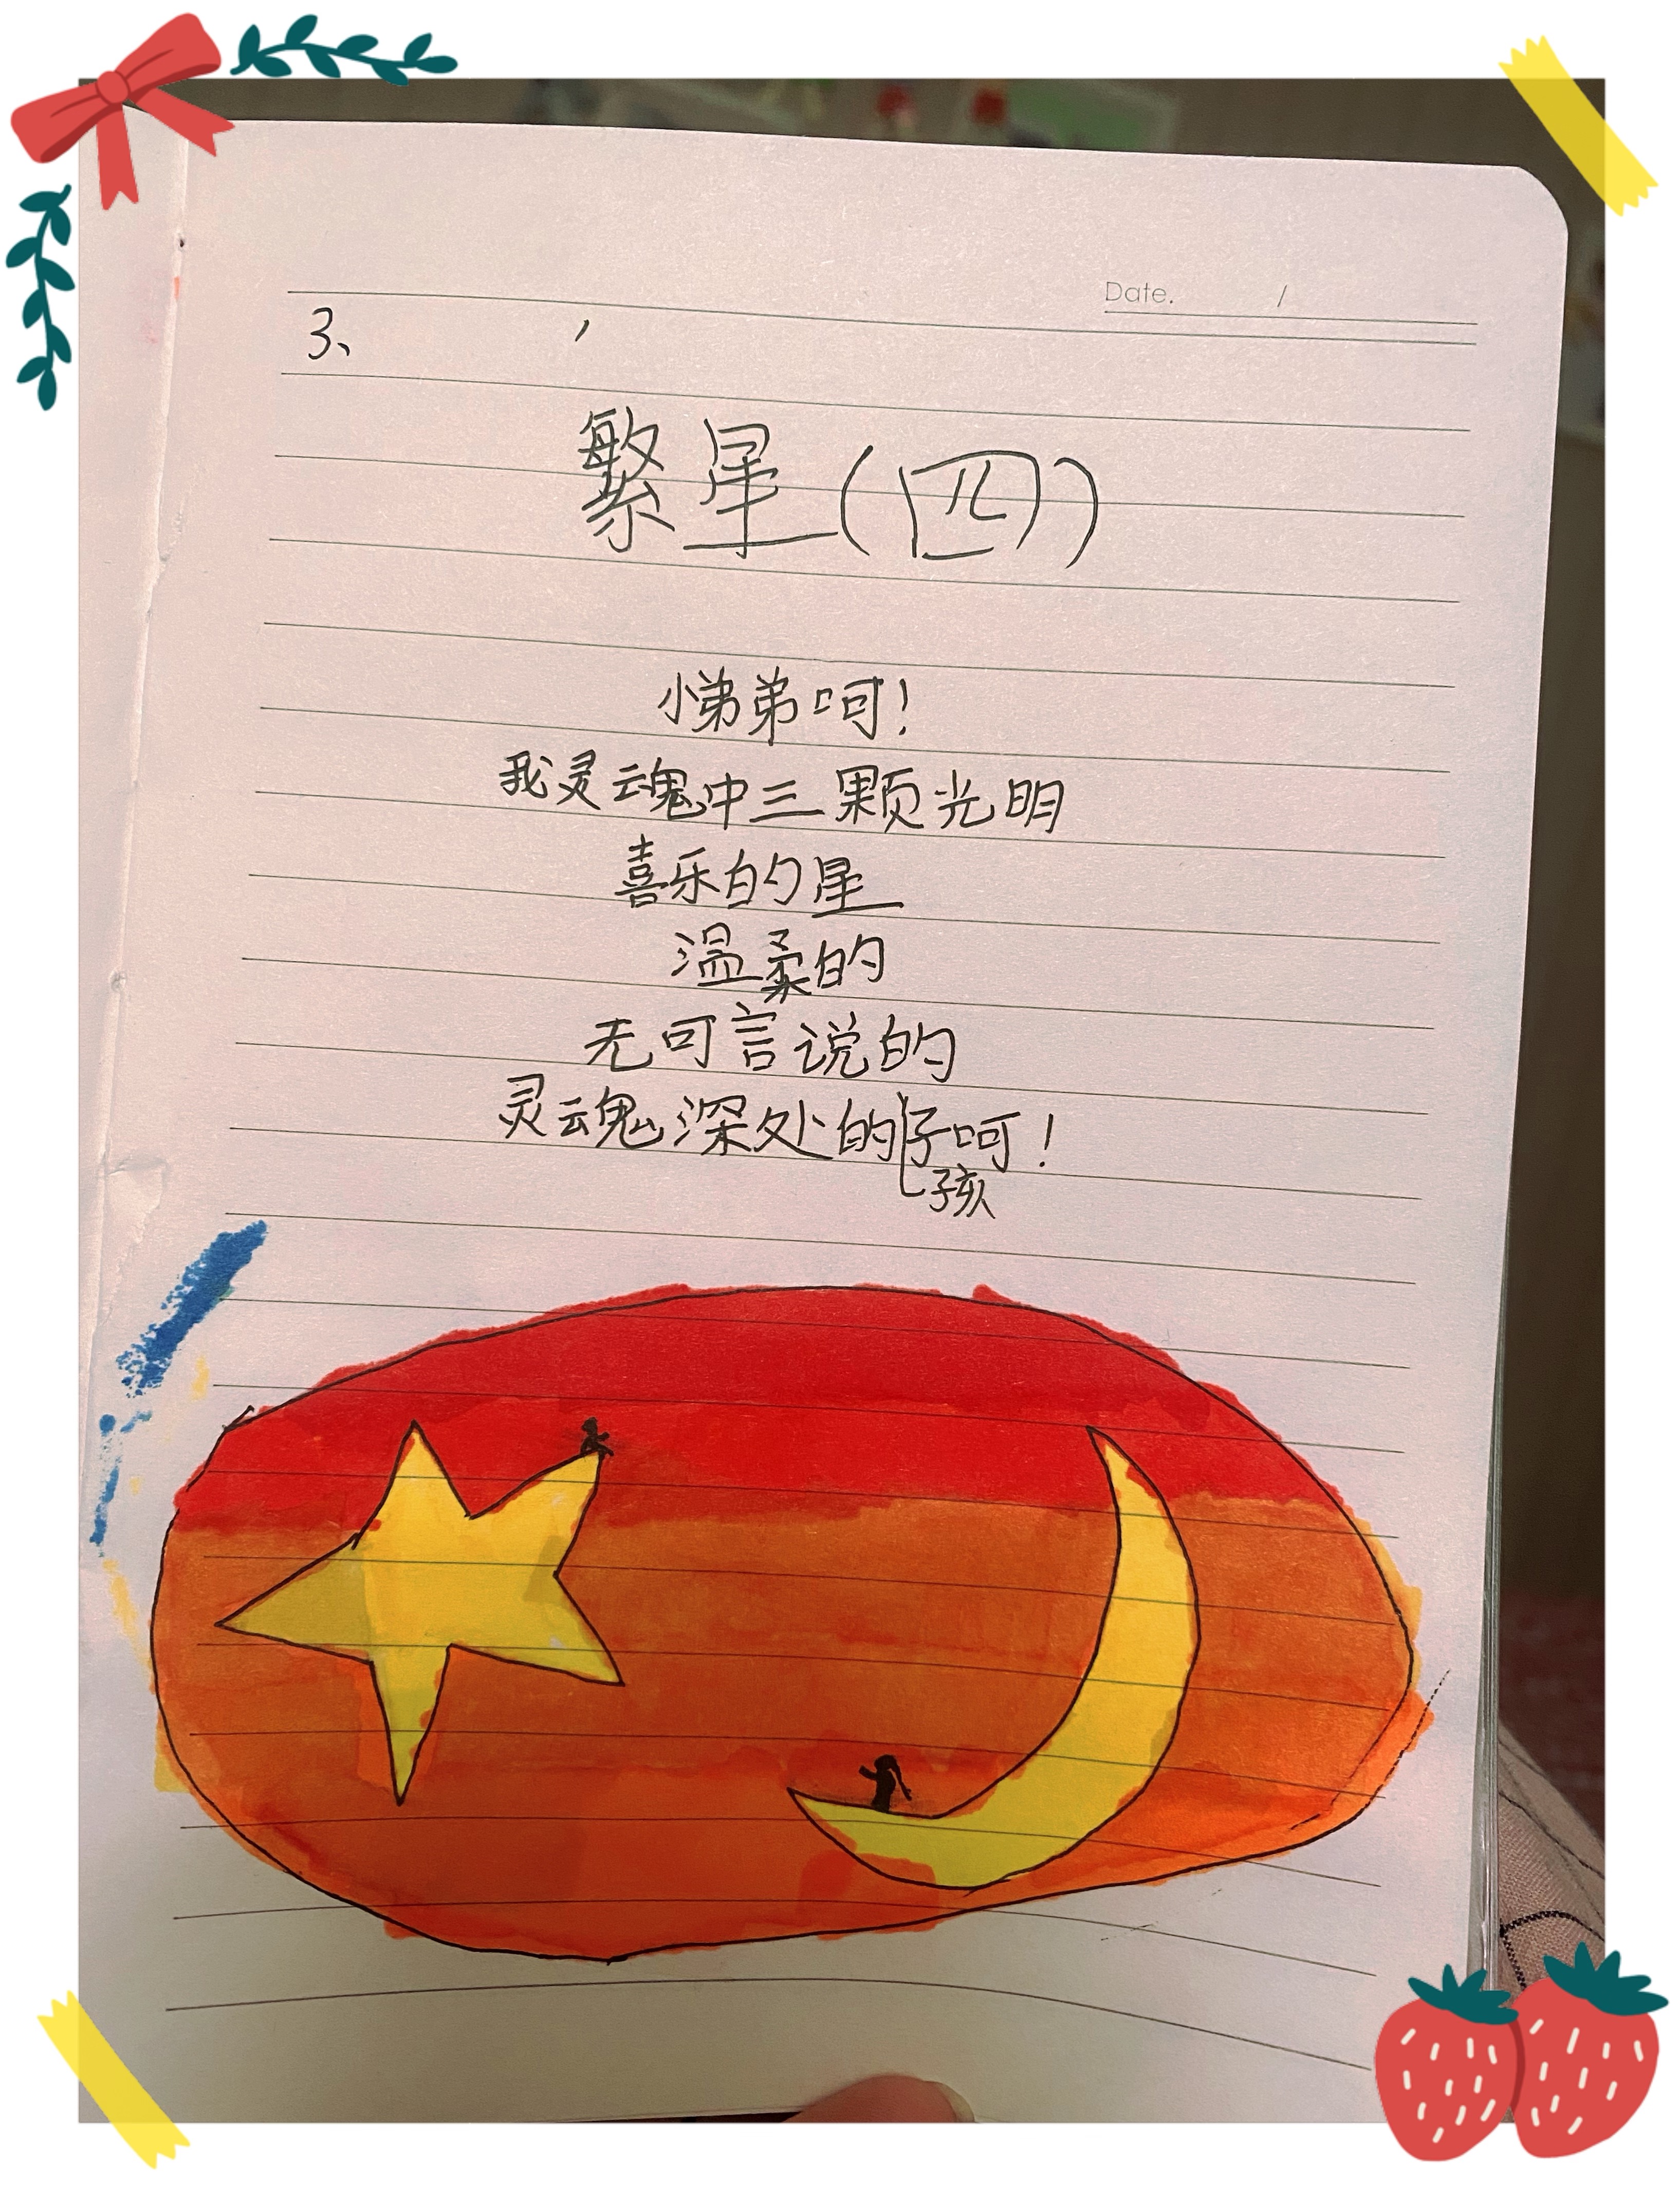 Date. /
3、
繁星(四)
小弟弟呵!
我灵魂中三颗光明
喜乐的星
温柔的
无可言说的
灵魂深处的孩子呵!